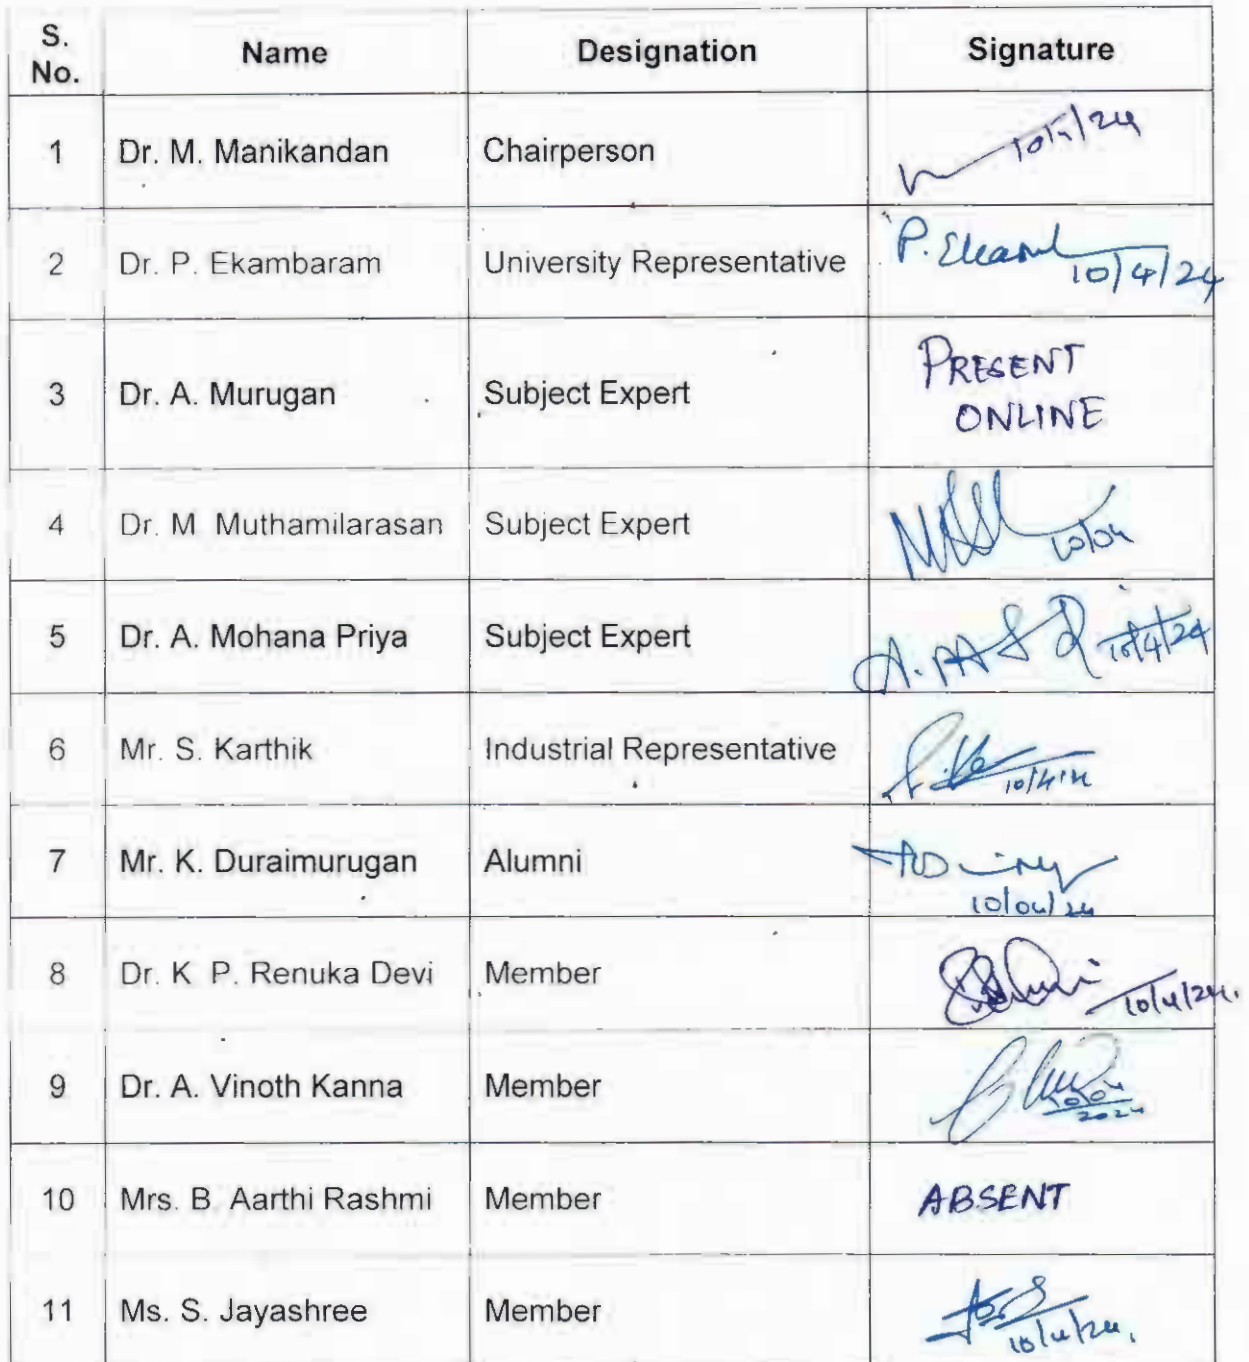 S. No. Name Designation Signature
1 Dr. M. Manikandan Chairperson 10/4/24
2 Dr. P. Ekambaram University Representative P. Ekam 10/4/24
3 Dr. A. Murugan Subject Expert PRESENT
ONLINE
4 Dr. M. Muthamilarasan Subject Expert 10/04
5 Dr. A. Mohana Priya Subject Expert 10/4/24
6 Mr. S. Karthik Industrial Representative 10/4/24
7 Mr. K. Duraimurugan Alumni
10/04/24
8 Dr. K. P. Renuka Devi Member 10/4/24.
9 Dr. A. Vinoth Kanna Member 10.04
2024
10 Mrs. B. Aarthi Rashmi Member ABSENT
11 Ms. S. Jayashree Member
10/4/24.